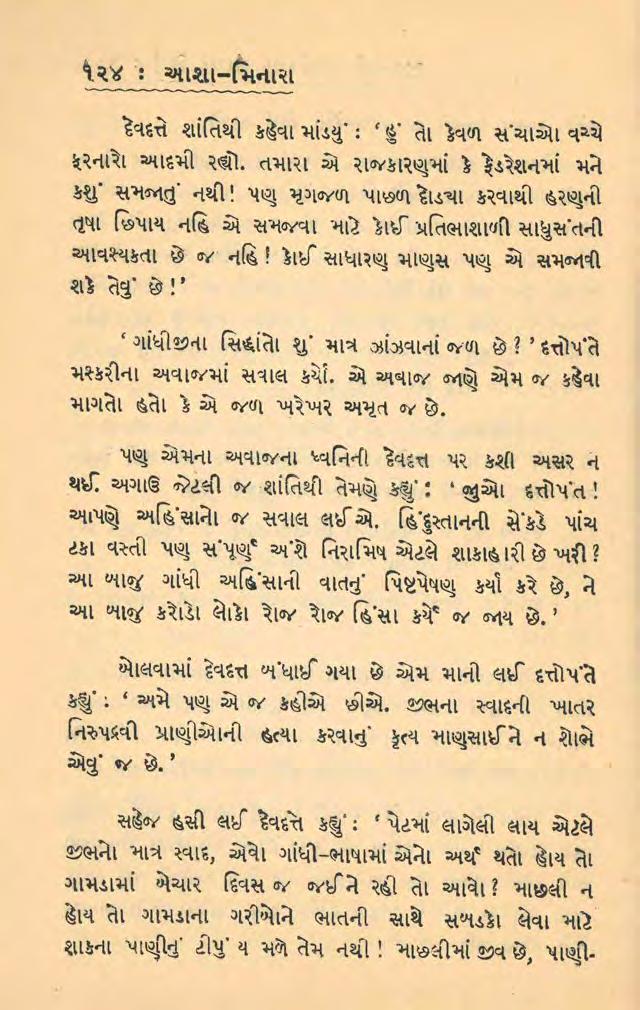 ૧૨૪ : આશા-મિનારા
દેવદત્તે શાંતિથી કહેવા માંડયું : ‘હું તો કેવળ સંચાઓ વચ્ચે
ફરનારો આદમી રહ્યો. તમારા એ રાજકારણમાં કે ફેડરેશનમાં મને
કશું સમજાતું નથી! પણ મૃગજળ પાછળ દોડયા કરવાથી હરણની
તૃષા છિપાય નહિ એ સમજવા માટે કોઈ પ્રતિભાશાળી સાધુસંતની
આવશ્યકતા છે જ નહિ! કોઈ સાધારણ માણસ પણ એ સમજાવી
શકે તેવું છે!’
‘ગાંધીજીના સિદ્ધાંતો શું માત્ર ઝાંઝવાનાં જળ છે?’ દત્તોપંતે
મશ્કરીના અવાજમાં સવાલ કર્યો. એ અવાજ જાણે એમ જ કહેવા
માગતો હતો કે એ જળ ખરેખર અમૃત જ છે.
પણ એમના અવાજના ધ્વનિની દેવદત્ત પર કશી અસર ન
થઈ. અગાઉ જેટલી જ શાંતિથી તેમણે કહ્યું : ‘જુઓ દત્તોપંત!
આપણે અહિંસાનો જ સવાલ લઈએ. હિંદુસ્તાનની સેંકડે પાંચ
ટકા વસ્તી પણ સંપૂર્ણ અંશે નિરામિષ એટલે શાકાહારી છે ખરી?
આ બાજુ ગાંધી અહિંસાની વાતનું પિષ્ટપેષણ કર્યા કરે છે, ને
આ બાજુ કરોડો લોકો રોજ રોજ હિંસા કર્યે જ જાય છે.’
બોલવામાં દેવદત્ત બંધાઈ ગયા છે એમ માની લઈ દત્તોપંતે
કહ્યું : ‘અમે પણ એ જ કહીએ છીએ. જીભના સ્વાદની ખાતર
નિરુપદ્રવી પ્રાણીઓની હત્યા કરવાનું કૃત્ય માણસાઈને ન શોભે
એવું જ છે.’
સહેજ હસી લઈ દેવદત્તે કહ્યું : ‘પેટમાં લાગેલી લાય એટલે
જીભનો માત્ર સ્વાદ, એવો ગાંધી-ભાષામાં એનો અર્થ થતો હોય તો
ગામડામાં બેચાર દિવસ જ જઈને રહી તો આવો? માછલી ન
હોય તો ગામડાના ગરીબોને ભાતની સાથે સબડકો લેવા માટે
શાકના પાણીનું ટીપું ય મળે તેમ નથી! માછલીમાં જીવ છે, પાણી-